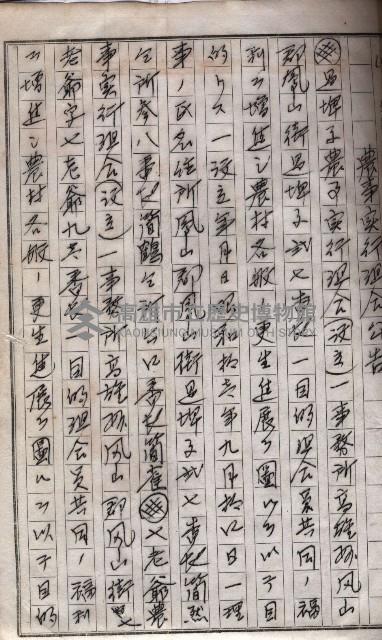 農事實行組合公告
過埤子農事實行組合設立一事務所高雄州鳳山
郡鳳山街過埤子 七番地一目的組合員共同ノ福
利ヲ增進シ農村各般ノ更生進展ヲ圖ルヲ以テ目
的トス一設立年月日昭和拾六年九月拾 日一理
事ノ氏名住所鳳山郡鳳山街過埤子 七番地簡
仝所參八番地簡鶴仝所 番地簡 老爺農
事實行組合設立一事務所高雄州鳳山郡鳳山街
老爺字七老爺九六番地 目的組合員共同ノ福利
ヲ增進シ農村各般ノ更生進展ヲ圖ルヲ以テ目的
高雄市立歷史博物館
KAOHSIUNG MUSEUM OF HISTORY